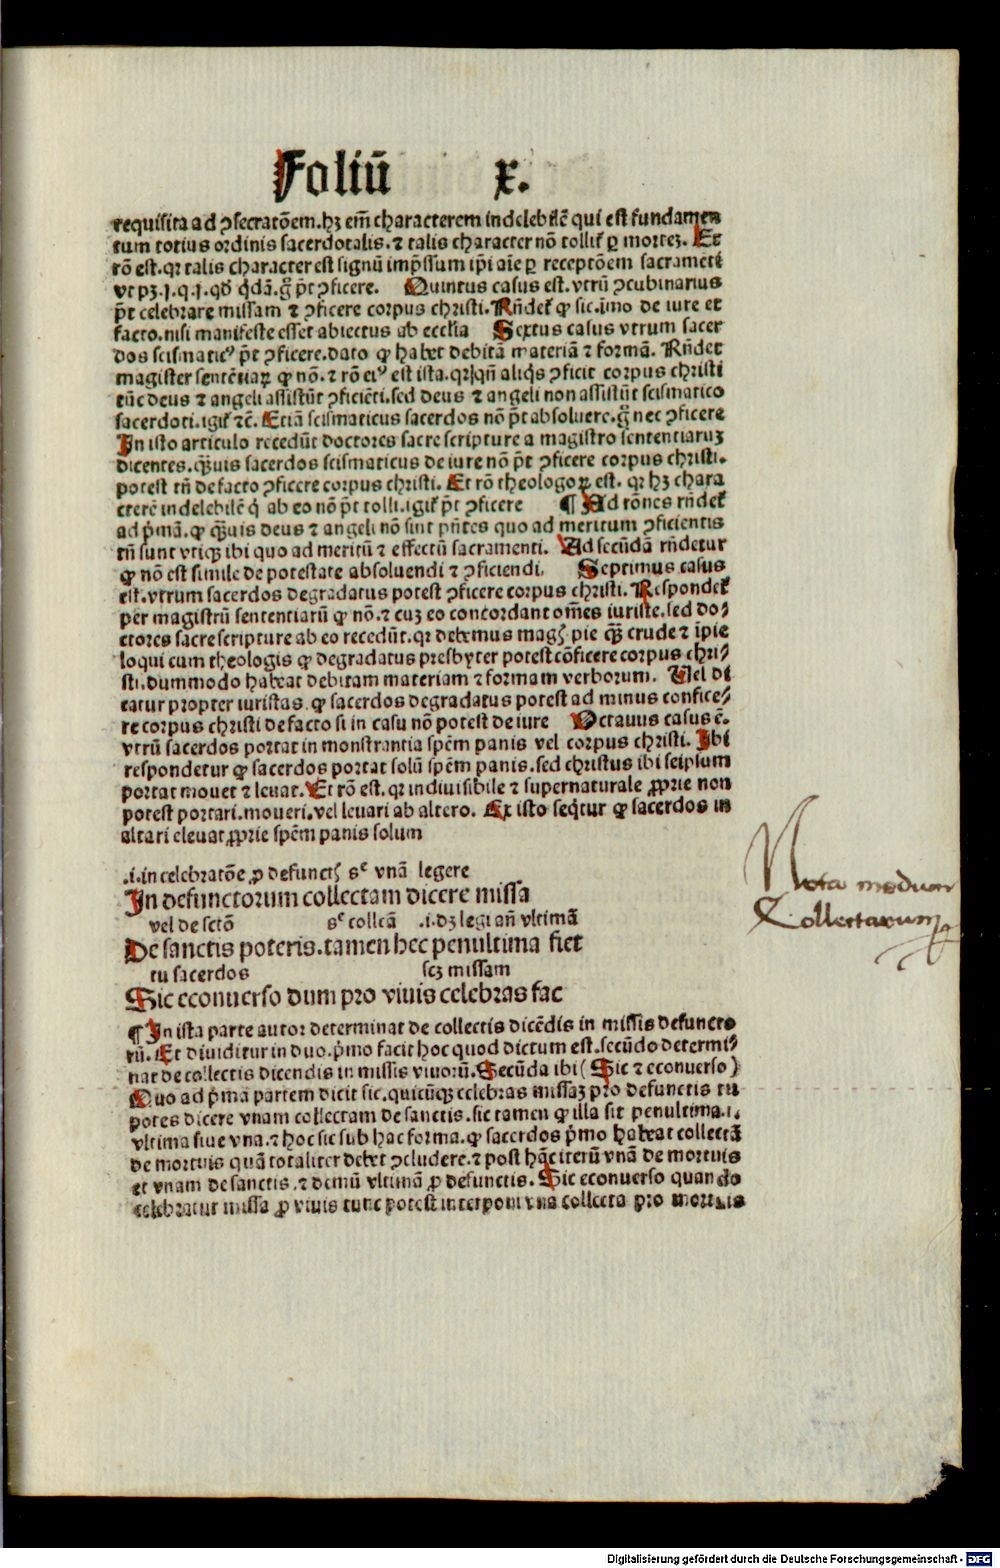 Foliū x.
requisita ad ꝯsecratōem. hꝫ em̄ characterem indelebilē qui est fundamen
tum totius ordinis sacerdotalis. ⁊ talis character nō tollit᷑ ꝑ mortez. Et
rō est. qꝛ talis character est signū imp̄ssum ip̄i aīe ꝑ receptōem sacramēti
vt pꝫ .j.q.j. qd̓ q̇dā. gͦ pt̄ ꝯficere. Quintus casus est. vtrū ꝯcubinarius
pt̄ celebrare missam ⁊ ꝯficere corpus christi. Rn̄det᷑ ꝙ sic. imo de iure et
facto. nisi manifeste esset abiectus ab eccl̓ia Sextus casus vtrum sacer
dos scismaticꝰ pt̄ ꝯficere. dato ꝙ habet debitā materiā ⁊ formā. Rn̄det
magister sentētiaꝝ ꝙ nō. ⁊ rō eiꝰ est ista. qꝛ qn̄ aliq̇s ꝯficit corpus christi
tūc deus ⁊ angeli assistūt ꝯficiēti. sed deus ⁊ angeli non assistūt scismatico
sacerdoti. igit᷑ ⁊c̄. Etiā scismaticus sacerdos nō pt̄ absoluere. gͦ nec ꝯficere
In isto articulo recedūt doctores sacre scripture a magistro sententiaruꝫ
dicentes. qͣuis sacerdos scismaticus de iure nō pt̄ ꝯficere corpus christi.
potest tn̄ de facto ꝯficere corpus christi. Et rō theologoꝝ est. qꝛ hꝫ chara
cterē indelebilē q̇ ab eo nō pt̄ tolli. igit᷑ pt̄ ꝯficere ¶ Ad rōnes rn̄det᷑
ad p̓mā. ꝙ qͣuis deus ⁊ angeli nō sint pn̄tes quo ad meritum ꝯficientis
tn̄ sunt vtiqꝫ ibi quo ad meritū ⁊ effectū sacramenti. Ad secūdā rn̄detur
ꝙ nō est simile de potestate absoluendi ⁊ ꝯficiendi. Septimus casus
est. vtrum sacerdos degradatus potest ꝯficere corpus christi. Respondet᷑
per magistrū sententiarū ꝙ nō. ⁊ cuꝫ eo concordant om̄es iuriste. sed do⸗
ctores sacre scripture ab eo recedūt. qꝛ debemus magꝭ pie qͣꝫ crude ⁊ īpie
loqui cum theologis ꝙ degradatus presbyter potest cōficere corpus chri⸗
sti. dummodo habeat debitam materiam ⁊ formam verborum. Vel di
catur propter iuristas ꝙ sacerdos degradatus potest ad minus confice⸗
re corpus christi de facto si in casu nō potest de iure Octauus casus ē.
vtrū sacerdos portat in monstrantia spēm panis vel corpus christi. Ibi
respondetur ꝙ sacerdos portat solū spēm panis. sed christus ibi seipsum
portat mouet ⁊ leuat. Et rō est. qꝛ indiuisibile ⁊ supernaturale ꝓprie non
potest portari. moueri. vel leuari ab altero. Ex isto seq̇tur ꝙ sacerdos in
altari eleuat ꝓprie spēm panis solum
.i. in celebratōe ꝓ defunctꝭ sꝫ vnā legere
In defunctorum collectam dicere missa
vel de sctō sꝫ collcā .i. dꝫ legi an̄ vltimā
De sanctis poteris. tamen hec penultima fiet
tu sacerdos scꝫ missam
Sic econuerso dum pro viuis celebras fac
¶ In ista parte autor determinat de collectis dicēdis in missis defuncto
rū. Et diuiditur in duo. p̓mo facit hoc quod dictum est. secūdo determi⸗
nat de collectis dicendis in missis viuorū. Secūda ibi (Sic ⁊ econuerso)
Quo ad p̓mā partem dicit sic. quicūqꝫ celebras missaꝫ pro defunctis tu
potes dicere vnam collectam de sanctis. sic tamen ꝙ illa sit penultima. i.
vltima siue vna. ⁊ hoc sic sub hac forma. ꝙ sacerdos p̓mo habeat collectā
de mortuis quā totaliter debet ꝯcludere. ⁊ post hāc iterū vnā de mortuis
et vnam de sanctis. ⁊ demū vltimā ꝓ defunctis. Sic econuerso quando
celebratur missa ꝓ viuis tunc potest interponi vna collecta pro mortuis
Nota modum
Collectarum
Digitalisierung gefördert durch die Deutsche Forschungsgemeinschaft - DFG